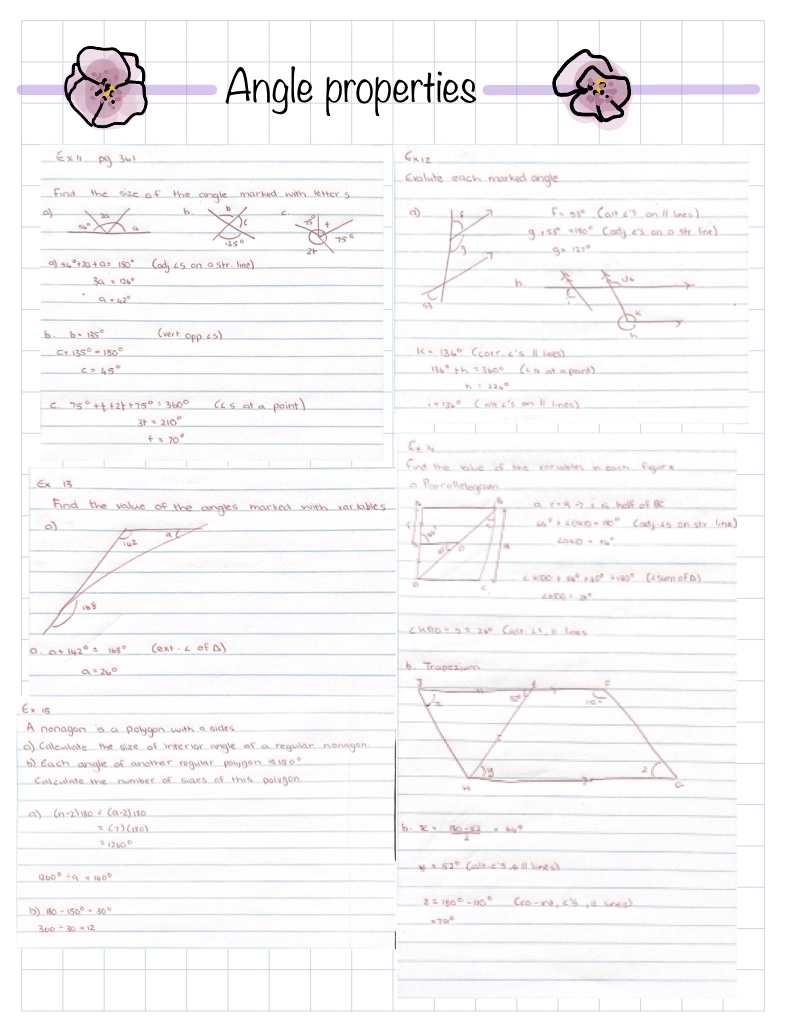 Angle properties
Ex 11 pg 361
Find the size of the angle marked with letters
a)
b.
c.
54°
2a
a
b
c
135°
75°
t
75°
2t
a) 54°+2a+a= 180° (adj ∠s on a str. line)
3a = 126°
a = 42°
b. b = 135° (vert opp ∠s)
c+135° = 180°
c = 45°
c. 75° + t + 2t + 75° = 360° (∠s at a point)
3t = 210°
t = 70°
Ex 12
Evalute each marked angle
a)
f
g
53
f = 53° (alt ∠'s on // lines)
g + 53° = 180° (adj ∠'s on a str line)
g = 127°
b
136
i
k
h
k = 136° (corr. ∠'s // lines)
136° + h = 360° (∠s at a point)
h = 224°
i = 136° (alt ∠'s on // lines)
Ex 13
Find the value of the angles marked with variables
a)
142
a
168
a. a + 142° = 168° (ext. ∠ of Δ)
a = 26°
Ex 14
Find the value of the variables in each figure
a Parallelogram
B
D
C
(adj ∠s on str line)
(∠sum of Δ)
(alt. ∠s, // lines
b. Trapezium
J
x
52°
110°
y
z
H
G
b. x = 180-52
2
= 64°
y = 52° (alt. ∠'s // lines)
z = 180° - 110° (co-int, ∠'s, // lines)
= 70°
Ex 15
A nonagon is a polygon with 9 sides
a) Calculate the size of interior angle of a regular nonagon.
b) Each angle of another regular polygon is 150°
Calculate the number of sides of this polygon
a) (n-2)180 = (9-2)180
= (7)(180)
= 1260°
1260° ÷ 9 = 140°
b) 180 - 150° = 30°
360 ÷ 30 = 12